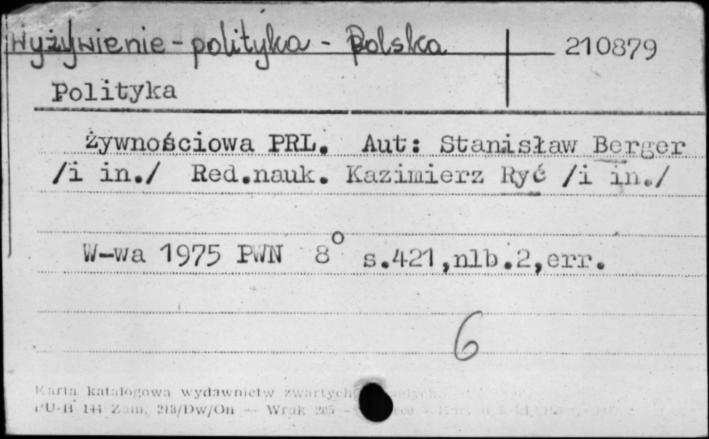 Wyżywienie - polityka - Polska
210879
Polityka
Żywnościowa PRL. Aut: Stanisław Berger
/i in./ Red.nauk. Kazimierz Ryć /i in./
W-wa 1975 PWN 8° s.421,nlb.2,err.
6
Karta katalogowa wydawnictw zwartych
PU-B 144 Zam. 213/Dw/On — Wrak